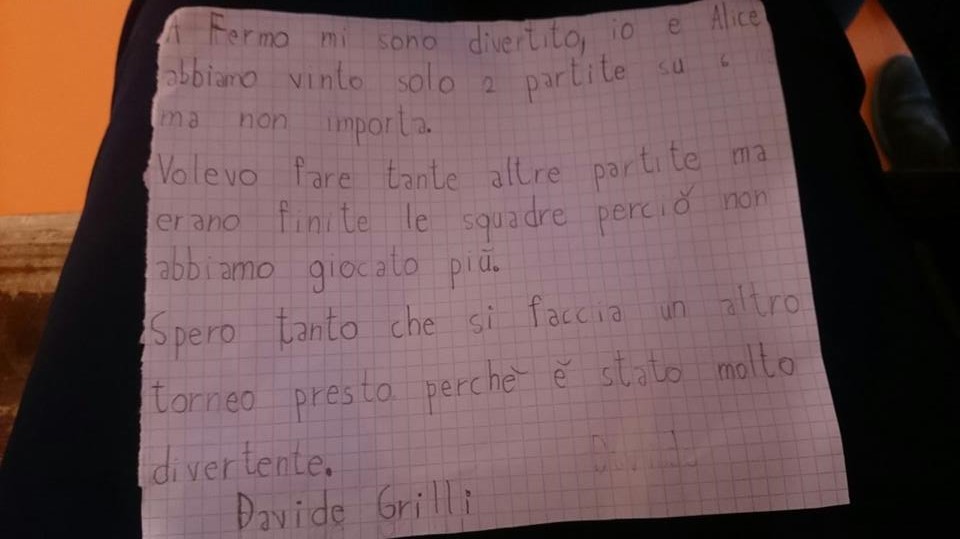 A Fermo mi sono divertito, io e Alice
abbiamo vinto solo 2 partite su 6
ma non importa.
Volevo fare tante altre partite ma
erano finite le squadre perciò non
abbiamo giocato più.
Spero tanto che si faccia un altro
torneo presto perchè è stato molto
divertente.
Davide
Davide Grilli